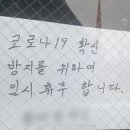 코로나19 확산
방지를 위하여
임시 휴무 합니다.